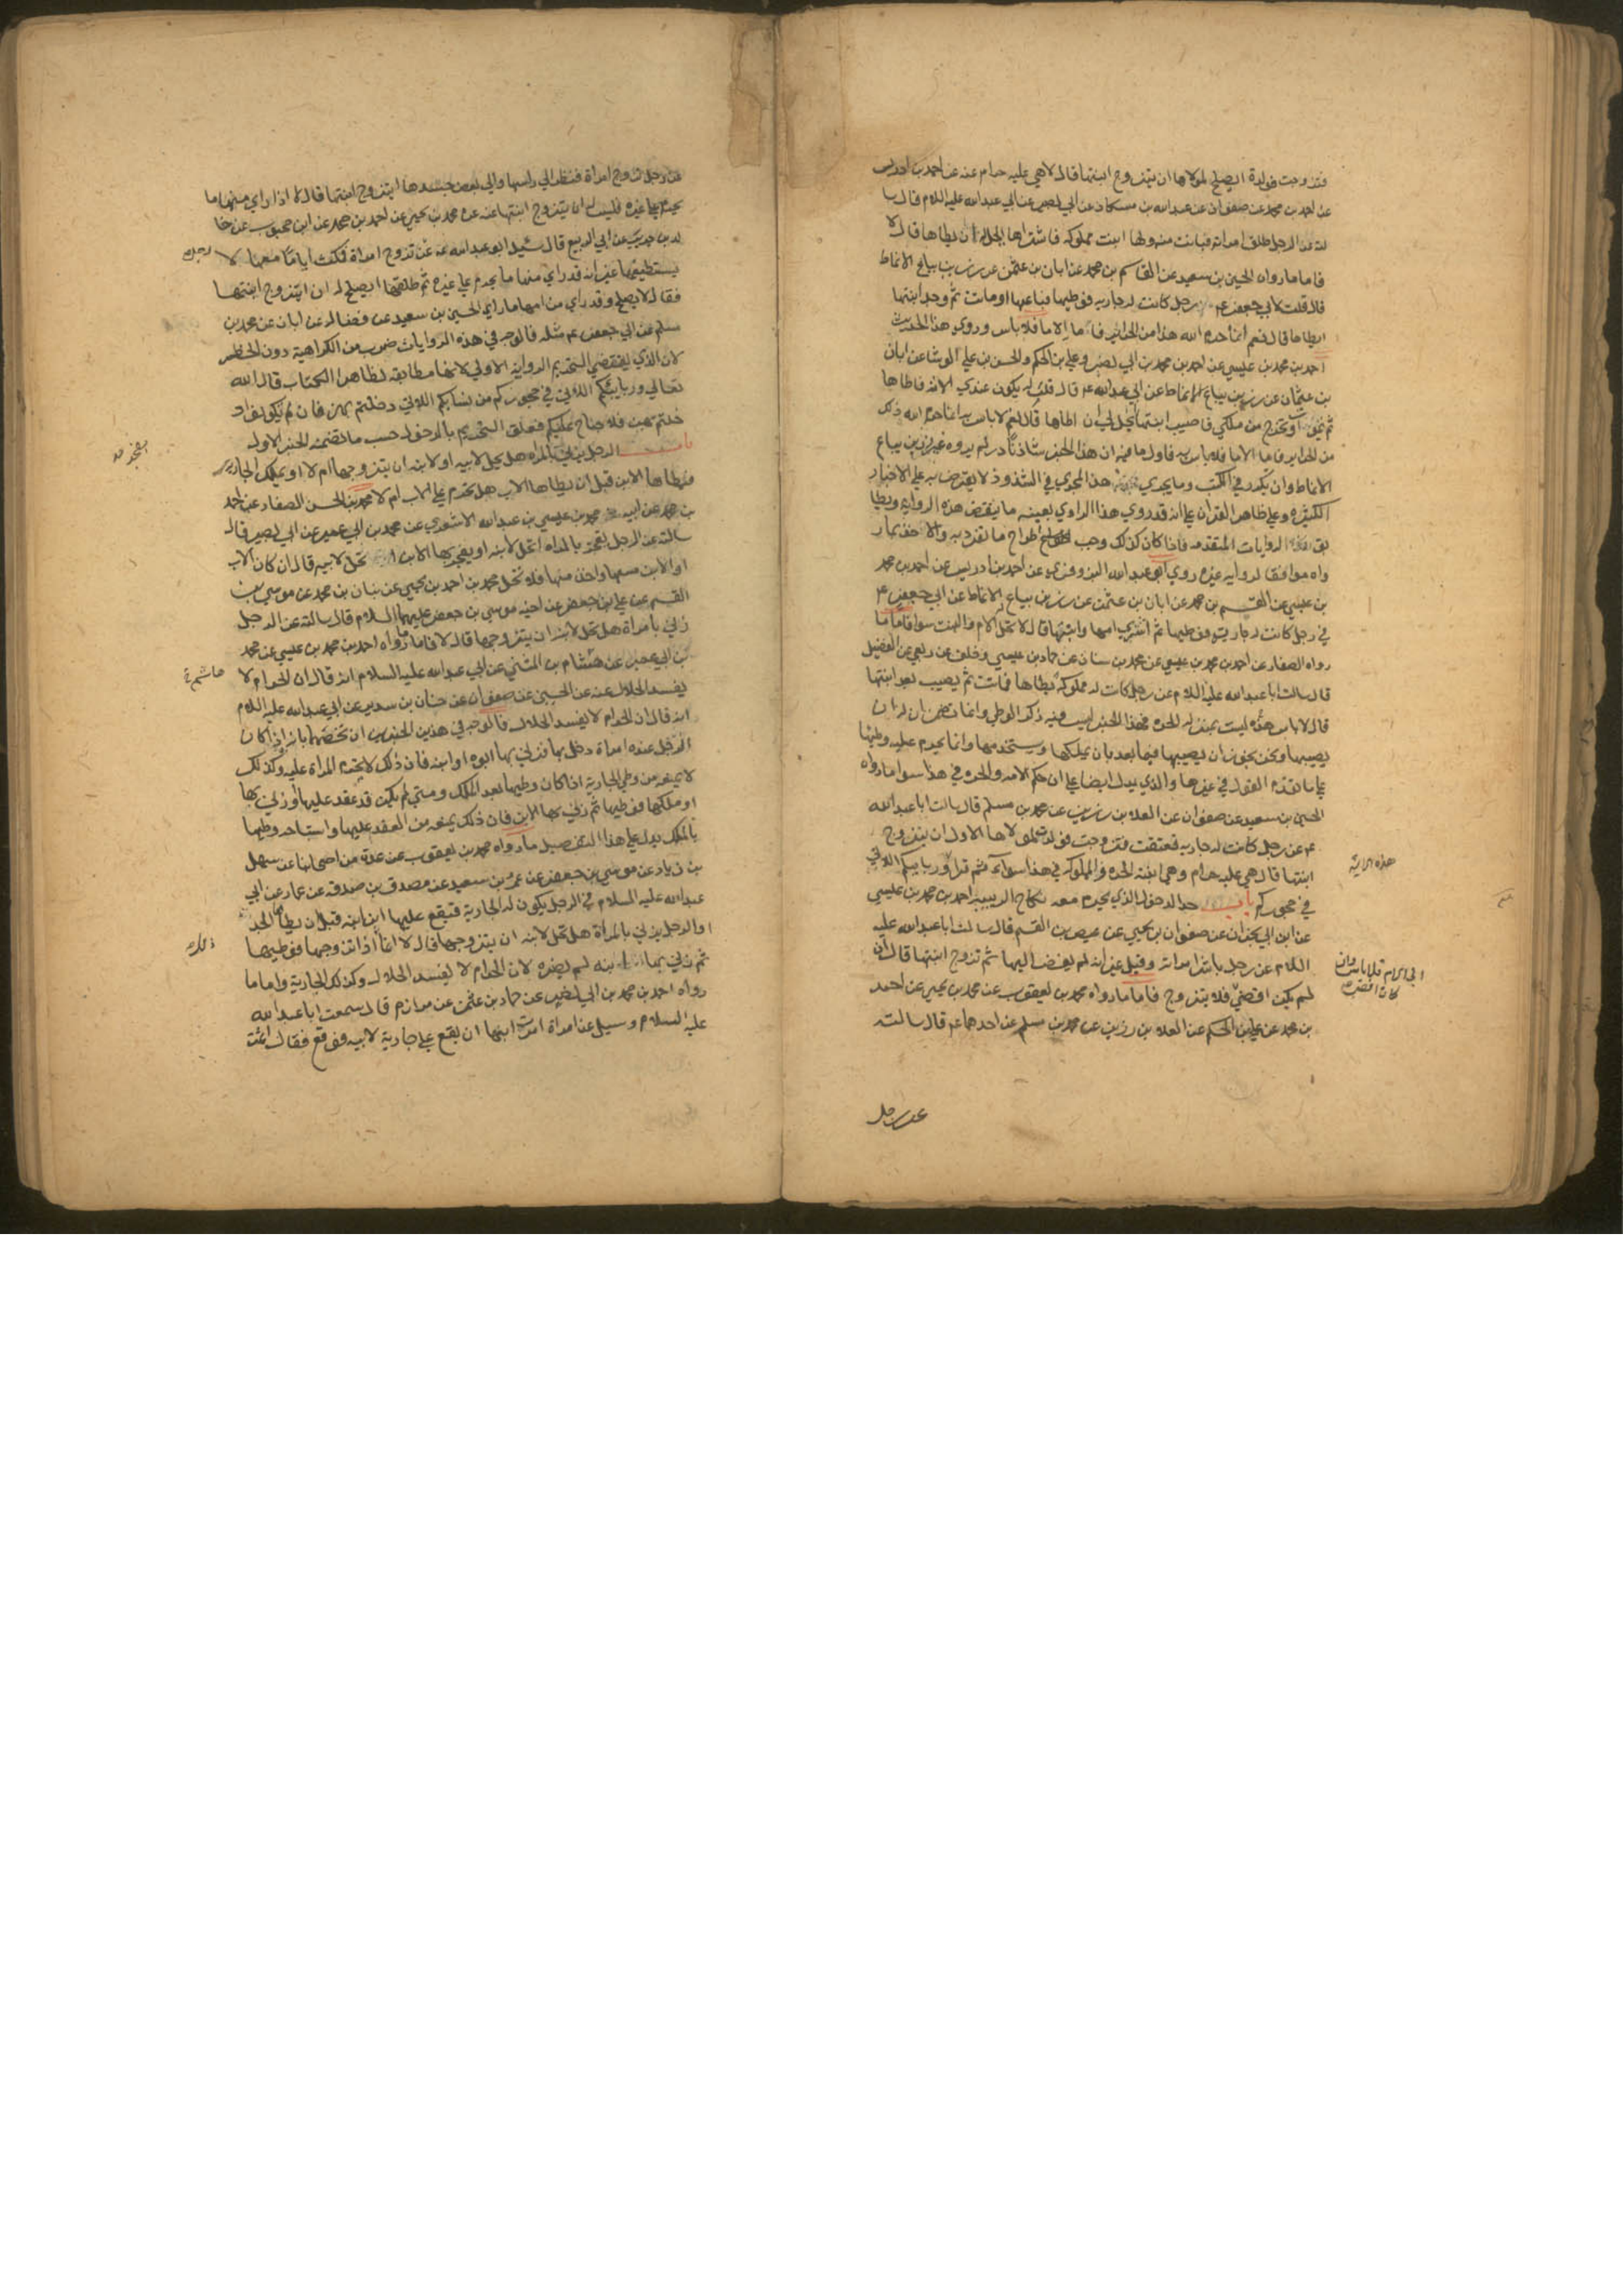 فتزوجت فولدة ايصلح لمولاها ان يتزوج ابنتها قال لا هي عليه حرام عنه عن احمد بن ادريس
عن احمد بن محمد عن صفوان عن عبد الله بن مسكان عن ابي بصير عن ابي عبد الله عليه السلام قال سا
لته عن الرجل طلق امراته فبانت منه ولها ابنت مملوكه فاشتراها ايحل له ان يطاها قال لا
فاما ما رواه الحسين بن سعيد عن القاسم بن محمد عن ابان بن عثمن عن رزين بياع الانماط
قال قلت لابي جعفر عم رجل كانت له جاريه فوطيها فباعها او ماتت ثم وجد ابنتها
ايطاها قال نعم انما حرم الله هذا من الحراير فاما الاما فلا باس وروي هذا الحديث
احمد بن محمد بن عيسي عن احمد بن محمد بن ابي نصر وعلي بن الحكم والحسن بن علي الوشا عن ابان
بن عثمان عن رزين بياع الانماط عن ابي عبد الله عم قال قلت له يكون عندي الامة فاطاها
ثم تموت او تخرج من ملكي فاصيب ابنتها ايحل لي ان اطاها قال نعم لا باس به انما حرم الله ذلك
من الحراير فاما الاما فلا باس به فاول ما فيه ان هذا الخبر شاذ نادر لم يروه غير رزين بياع
الانماط وان تكرر في الكتب وما يجري هذا المجري في الشذوذ لا يعترض به علي الاخبار
الكثيره وعلي ظاهر القران علي انه قد روي هذا الراوي بعينه ما ينقض هذه الروايه ويطا
بق الروايات المتقدمه فاذا كان كذلك وجب اطراح ما تفرد به والاخذ بما ر
واه موافقا لرواية غيره روي ابو عبد الله البزوفري عن احمد بن ادريس عن احمد بن محمد
بن عيسي عن القسم بن محمد عن ابان بن عثمن عن رزين بياع الانماط عن ابي جعفر عم
في رجل كانت له جارية فوطيها ثم اشتري امها وابنتها قال لا تحل له الام والبنت سوا فاما ما
رواه الصفار عن احمد بن محمد بن عيسي عن محمد بن سنان عن حماد بن عيسي وخلف عن ربعي عن الفضيل
قال سالت ابا عبد الله عليه السلام عن رجل كانت له مملوكة يطاها فماتت ثم يصيب بعد ابنتها
قال لا باس هذه ليست بمنزلة الحره فهذا الخبر ليس فيه ذكر الوطي وانما تضمن ان له ان
يصيبها ونحن نجوز ان يصيبها فيما بعد بان يملكها ويستخدمها وانما يحرم عليه وطيها
علي ما تقدم القول في غيرها والذي يدل ايضا علي ان حكم الامه والحره في هذا سوا ما رواه
الحسين بن سعيد عن صفوان عن العلا بن رزين عن محمد بن مسلم قال سالت ابا عبد الله
عم عن رجل كانت له جاريه فعتقت فتزوجت فولدت ايصلح لمولاها الاول ان يتزوج
ابنتها قال هي عليه حرام وهي ابنته الحره والمملوكه في هذا سوآء ثم قرا وربايبكم اللاتي
هذه الاية
في حجوركم باب حد الدخول الذي يحرم معه نكاح الربيبه احمد بن محمد بن عيسي
عن ابن ابي نجران عن صفوان بن يحيي عن عيص بن القسم قال سالت ابا عبد الله عليه
السلام عن رجل باشر امراته وقبل غير انه لم يفض اليها ثم تزوج ابنتها قال ان
لم يكن افضي فلا يتزوج فاما ما رواه محمد بن يعقوب عن محمد بن يحيي عن احمد
الي الام فلا باس وان
كان افضي
بن محمد عن علي بن الحكم عن العلا بن رزين عن محمد بن مسلم عن احدهما عم قال سالته
عن رجل
عن رجل تزوج امراة فنظر الي راسها والي بعض جسدها ايتزوج ابنتها قال لا اذا راي منها ما
يحرم علي غيره فليس له ان يتزوج ابنتها عنه عن محمد بن يحيي عن احمد بن محمد عن ابن محبوب عن خا
لد بن جرير عن ابي الربيع قال سئل ابو عبد الله عم عن تزوج امراة فمكث اياما معها لا
رجل
يستطيعها غير انه قد راي منها ما يحرم علي غيره ثم طلقها ايصلح له ان ايتزوج ابنتها
فقال لا يصلح وقد راي من امها ما راي الحسين بن سعيد عن فضاله عن ابان عن محمد بن
مسلم عن ابي جعفر عم مثله فالوجه في هذه الروايات ضرب من الكراهية دون الحظر
لان الذي يقتضي التحريم الرواية الاولي لانها مطابقه لظاهر الكتاب قال الله
تعالي وربايبكم اللاتي في حجوركم من نسايكم اللاتي دخلتم بهن فان لم تكونوا د
خلتم بهن فلا جناح عليكم فعلق التحريم بالدخول حسب ما تضمنه الخبر الاول
باب الرجل يزني بالمراه هل يحل لابيه او لابنه ان يتزوجها ام لا او يملك الجاريه
فيطاها الابن قبل ان يطاها الاب هل تحرم علي الاب ام لا محمد بن الحسن الصفار عن احمد
بن محمد عن ابيه محمد بن عيسي بن عبد الله الاشعري عن محمد بن ابي عمير عن ابي بصير قال
سالته عن الرجل يفجر بالمراه اتحل لابنه او يفجر بها الابن اتحل لابيه قال ان كان الاب
او الابن مسها واحد منهما فلا تحل محمد بن احمد بن يحيي عن بنان بن محمد عن موسي بن
القسم عن علي بن جعفر عن اخيه موسي بن جعفر عليهما السلام قال سالته عن الرجل
زني بامراة هل تحل لابنه ان يتزوجها قال لا فاما ما رواه احمد بن محمد بن عيسي عن محمد
بن ابي عمير عن هشام بن المثني عن ابي عبد الله عليه السلام انه قال ان الحرام لا
هاشم
يفسد الحلال عنه عن الحسين عن صفوان عن حنان بن سدير عن ابي عبد الله عليه السلام
انه قال ان الحرام لا يفسد الحلال فالوجه في هذين الخبرين ان نخصهما بانه اذا كان
الرجل عنده امراة دخل بها فزني بها ابوه او ابنه فان ذلك لا يحرم المراة عليه وكذلك
لا يمنعه من وطي الجارية اذا كان وطيها بعد الملك ومتي لم يكن قد عقد عليها او زني بها
او ملكها فوطيها ثم زني بها الابن فان ذلك يمنعه من العقد عليها واستباحه وطيها
بالملك يدل علي هذا التفصيل ما رواه محمد بن يعقوب عن عدة من اصحابنا عن سهل
بن زياد عن موسي بن جعفر عن عمرو بن سعيد عن مصدق بن صدقه عن عمار عن ابي
عبد الله عليه السلام في الرجل يكون له الجارية فيقع عليها ابن ابنه قبل ان يطاها الجد
او الرجل يزني بالمراة هل تحل لابنه ان يتزوجها قال لا انما اذا تزوجها فوطيها
ذلك
ثم زني بها ابنه لم يضره لان الحرام لا يفسد الحلال وكذلك الجارية واما ما
رواه احمد بن محمد بن ابي نصر عن حماد بن عثمن عن مرازم قال سمعت ابا عبد الله
عليه السلام وسيل عن امراة امرت ابنها ان يقع علي جارية لابيه فوقع فقال اثمت